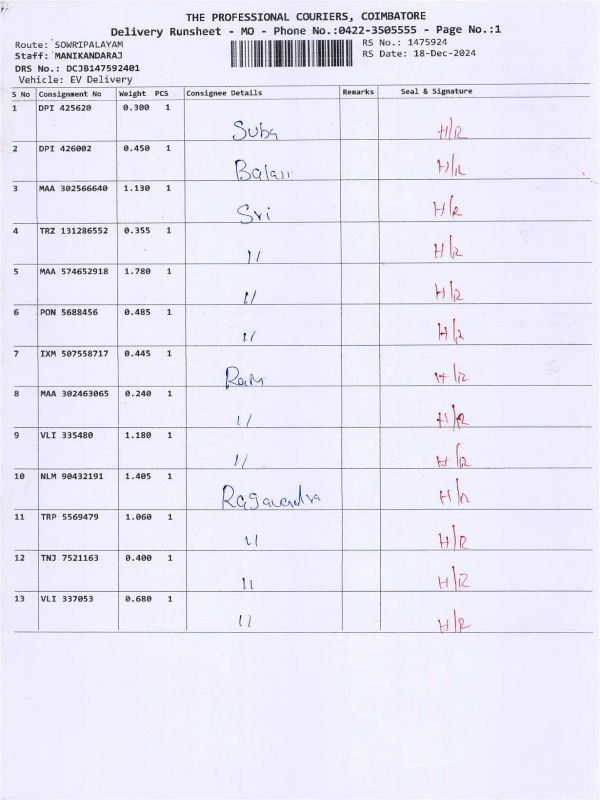 THE PROFESSIONAL COURIERS, COIMBATORE
Delivery Runsheet - MO - Phone No.:0422-3505555 - Page No.:1
Route: SOWRIPALAYAM
RS No.: 1475924
Staff: MANIKANDARAJ
RS Date: 18-Dec-2024
DRS No.: DCJB147592401
Vehicle: EV Delivery
S No Consignment No Weight PCS Consignee Details Remarks Seal & Signature
1 DPI 425620 0.300 1
Suba H/R
2 DPI 426002 0.450 1
Balaji H/R
3 MAA 302566640 1.130 1
Sri H/R
4 TRZ 131286552 0.355 1
" H/R
5 MAA 574652918 1.780 1
" H/R
6 PON 5688456 0.485 1
" H/R
7 IXM 507558717 0.445 1
Ram H/R
8 MAA 302463065 0.240 1
" H/R
9 VLI 335480 1.180 1
" H/R
10 NLM 90432191 1.405 1
Ragavendra H/R
11 TRP 5569479 1.060 1
" H/R
12 TNJ 7521163 0.400 1
" H/R
13 VLI 337053 0.680 1
" H/R